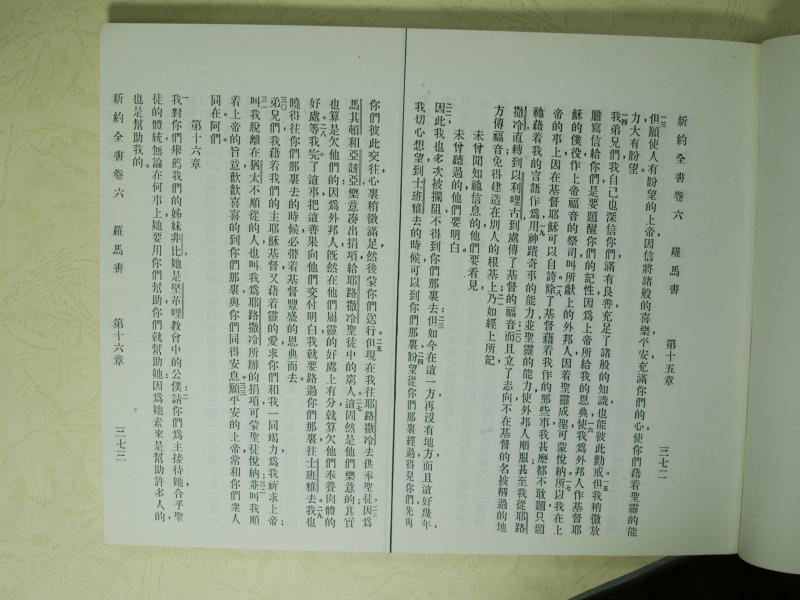 新約全書卷六 羅馬書 第十五章 三七二
一三但願使人有盼望的上帝因信將諸般的喜樂平安充滿你們的心使你們藉着聖靈的能
力大有盼望。
一四我弟兄們我自己也深信你們滿有良善充足了諸般的知識也能彼此勸戒一五但我稍微放
膽寫信給你們是要題醒你們的記性因爲上帝所給我的恩典一六使我爲外邦人作基督耶
穌的僕役作上帝福音的祭司叫所獻上的外邦人因着聖靈成聖可蒙悅納一七所以我在上
帝的事上因在基督耶穌可以自誇一八除了基督藉着我作的那些事我甚麼都不敢題只題
祂藉着我的言語作爲一九用神蹟奇事的能力並聖靈的能力使外邦人順服甚至我從耶路
撒冷直轉到以利哩古到處傳了基督的福音二〇而且立了志向不在基督的名被稱過的地
方傳福音免得建造在別人的根基上二一乃如經上所記
未曾聞知祂信息的他們要看見
未曾聽過的他們要明白。
二二因此我也多次被攔阻不得到你們那裏去二三但如今在這一方再沒有地方而且這好幾年
我切心想望到士班雅去的時候可以到你們那裏二四盼望從你們那裏經過得見你們先與
你們彼此交往心裏稍微滿足然後蒙你們送行二五但現在我往耶路撒冷去供奉聖徒二六因爲
馬其頓和亞該亞樂意湊出捐項給耶路撒冷聖徒中的窮人二七這固然是他們樂意的其實
也算是欠他們的因爲外邦人旣然在他們屬靈的好處上有分就算欠他們奉養肉體的
好處二八等我完了這事把這善果向他們交付明白我就要路過你們那裏往士班雅去二九我也
曉得往你們那裏去的時候必帶着基督豐盛的恩典而去。
三〇弟兄們我藉着我們的主耶穌基督又藉着靈的愛求你們和我一同竭力爲我祈求上帝
三一叫我脫離在猶太不順從的人也叫我爲耶路撒冷所辦的捐項可蒙聖徒悅納三二並叫我順
着上帝的旨意歡歡喜喜的到你們那裏與你們同得安息三三願平安的上帝常和你們衆人
同在阿們。
第十六章
一我對你們舉薦我們的姊妹非比她是堅革哩教會中的公僕二請你們爲主接待她合乎聖
徒的體統無論在何事上她要用你們幫助你們就幫助她因爲她素來是幫助許多人的
也是幫助我的。
新約全書卷六 羅馬書 第十六章 三七三